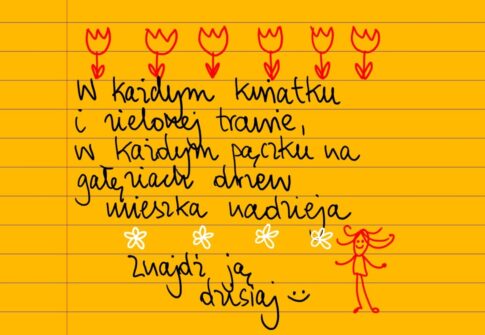 W każdym kwiatku
i zielonej trawie,
w każdym pączku na
gałęziach drzew
mieszka nadzieja
znajdź ją
dzisiaj